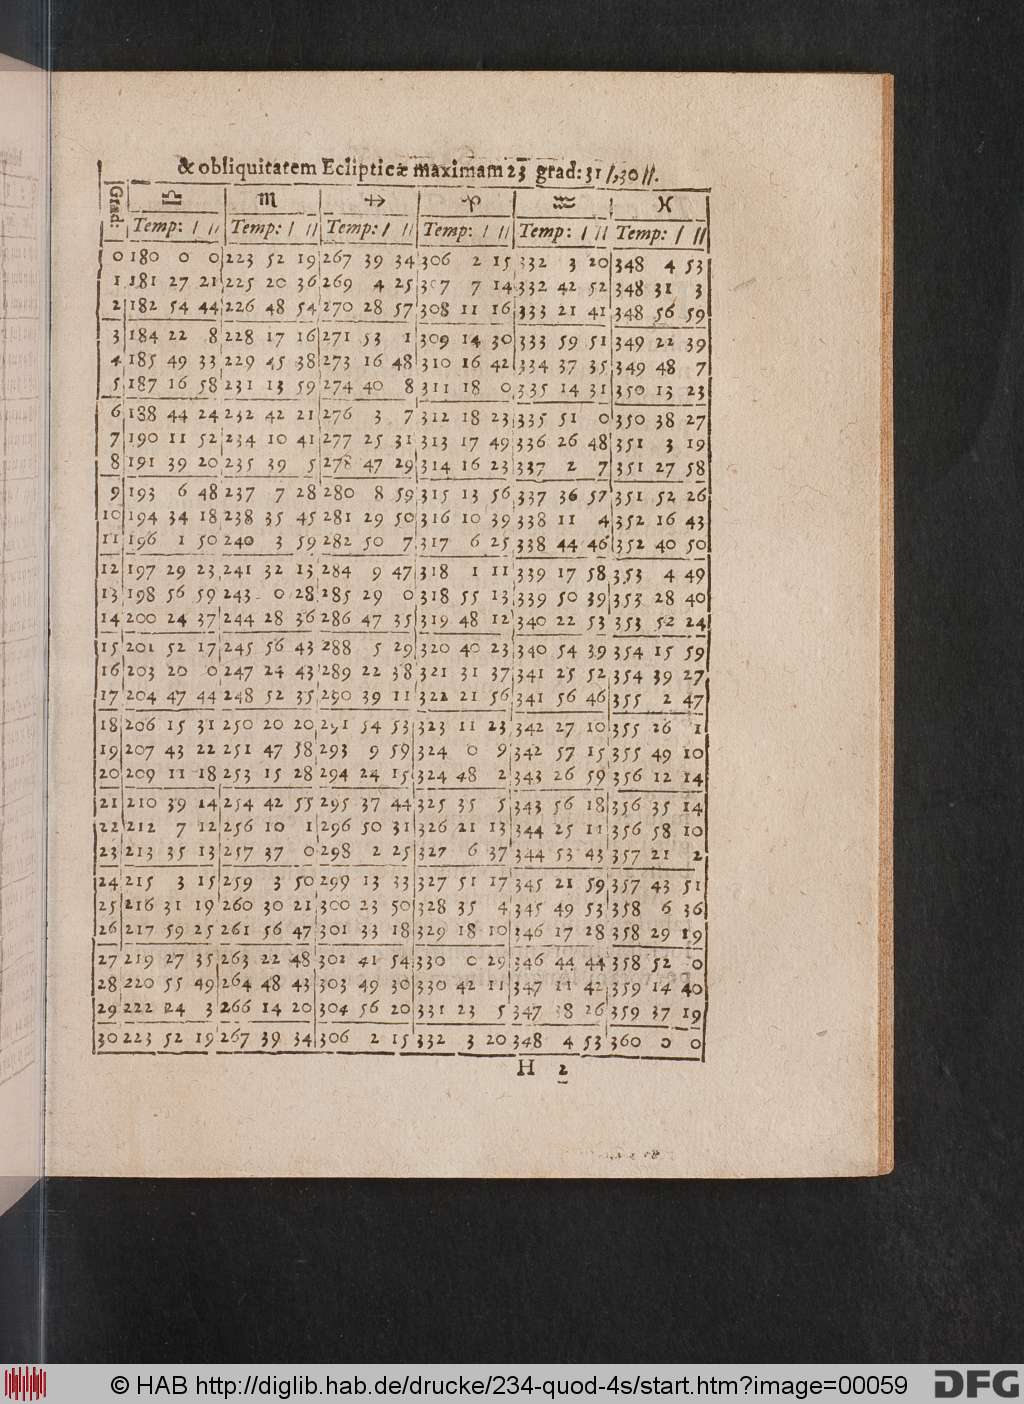 & obliquitatem Eclipticæ maximam 23 grad: 31 /, 30 //.
Grad: ♎ ♏ ♐ ♑ ♒ ♓
Temp: / // Temp: / // Temp: / // Temp: / // Temp: / // Temp: / //
0 180 0 0 223 52 19 267 39 34 306 2 15 332 3 20 348 4 53
1 181 27 21 225 20 36 269 4 25 307 7 14 332 42 52 348 31 3
2 182 54 44 226 48 54 270 28 57 308 11 16 333 21 41 348 56 59
3 184 22 8 228 17 16 271 53 1 309 14 30 333 59 51 349 22 39
4 185 49 33 229 45 38 273 16 48 310 16 42 334 37 35 349 48 7
5 187 16 58 231 13 59 274 40 8 311 18 0 335 14 31 350 13 23
6 188 44 24 232 42 21 276 3 7 312 18 23 335 51 0 350 38 27
7 190 11 52 234 10 41 277 25 31 313 17 49 336 26 48 351 3 19
8 191 39 20 235 39 5 278 47 29 314 16 23 337 2 7 351 27 58
9 193 6 48 237 7 28 280 8 59 315 13 56 337 36 57 351 52 26
10 194 34 18 238 35 45 281 29 50 316 10 39 338 11 4 352 16 43
11 196 1 50 240 3 59 282 50 7 317 6 25 338 44 46 352 40 50
12 197 29 23 241 32 13 284 9 47 318 1 11 339 17 58 353 4 49
13 198 56 59 243 0 28 285 29 0 318 55 13 339 50 39 353 28 40
14 200 24 37 244 28 36 286 47 35 319 48 12 340 22 53 353 52 24
15 201 52 17 245 56 43 288 5 29 320 40 23 340 54 39 354 15 59
16 203 20 0 247 24 43 289 22 38 321 31 37 341 25 52 354 39 27
17 204 47 44 248 52 35 290 39 11 322 21 56 341 56 46 355 2 47
18 206 15 31 250 20 20 291 54 53 323 11 23 342 27 10 355 26 1
19 207 43 22 251 47 58 293 9 59 324 0 9 342 57 15 355 49 10
20 209 11 18 253 15 28 294 24 15 324 48 2 343 26 59 356 12 14
21 210 39 14 254 42 55 295 37 44 325 35 5 343 56 18 356 35 14
22 212 7 12 256 10 1 296 50 31 326 21 13 344 25 11 356 58 10
23 213 35 13 257 37 0 298 2 25 327 6 37 344 53 43 357 21 2
24 215 3 15 259 3 50 299 13 33 327 51 17 345 21 59 357 43 51
25 216 31 19 260 30 21 300 23 50 328 35 4 345 49 53 358 6 36
26 217 59 25 261 56 47 301 33 18 329 18 10 346 17 28 358 29 19
27 219 27 35 263 22 48 302 41 54 330 0 29 346 44 44 358 52 0
28 220 55 49 264 48 43 303 49 30 330 42 11 347 11 42 359 14 40
29 222 24 3 266 14 20 304 56 20 331 23 5 347 38 26 359 37 19
30 223 52 19 267 39 34 306 2 15 332 3 20 348 4 53 360 0 0
H 2
© HAB http://diglib.hab.de/drucke/234-quod-4s/start.htm?image=00059
DFG